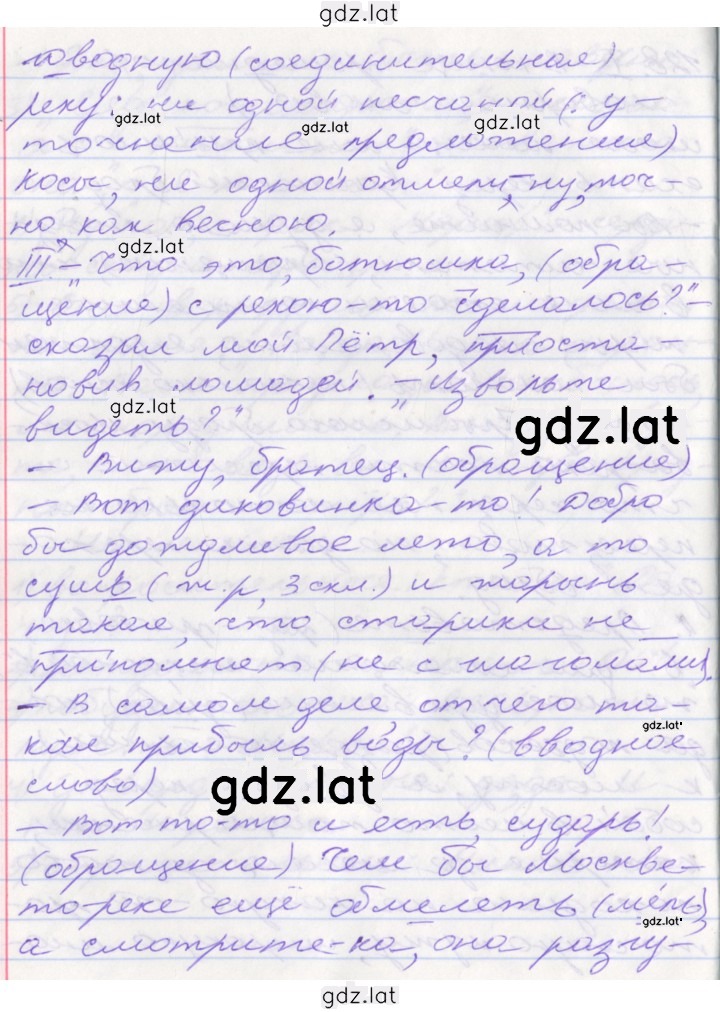 gdz.lat
водную (соединительная)
реку: ни одной песчаной (: у-
gdz.lat
gdz.lat
gdz.lat
точнение предложения)
косы, ни одной отмели, – ну, точ-
но как весною.
gdz.lat
III. – „Что это, батюшка, (обра-
щение) с рекою-то сделалось?" –
сказал мой Пётр, приоста-
новив лошадей. – „Извольте
gdz.lat
видеть?"
gdz.lat
– Вижу, братец. (обращение)
– Вот диковинка-то! Добро
бы дождливое лето, а то
сушь (ж.р, 3 скл.) и жарынь
такая, что старики не
припомнят (не с глаголами).
– В самом деле, отчего та-
gdz.lat
кая прибыль воды? (вводное
слово)
gdz.lat
– Вот то-то и есть, сударь!
(обращение) Чем бы Москве-
то-реке ещё обмелеть (мель),
gdz.lat
а смотрите-ка, она разгу-
gdz.lat